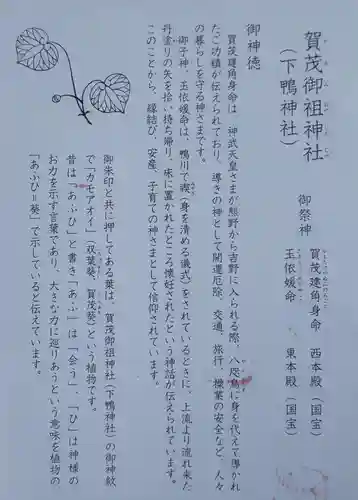 賀茂御祖神社
（下鴨神社）
御祭神
賀茂建角身命　西本殿（国宝）
玉依媛命　東本殿（国宝）
御神徳
賀茂建角身命は　神武天皇さまが熊野から吉野に入られる際、八咫烏に身を代えて導かれ
たご功績が伝えられており、導きの神として開運厄除、交通、旅行、操業の安全など、人々
の暮らしを守る神さまです。
御子神、玉依媛命は、鴨川で禊（身を清める儀式）をされているときに、上流より流れ来た
丹塗りの矢を拾い持ち帰り、床に置かれたところ懐妊されたという神話が伝えられています。
このことから、縁結び、安産、子育ての神さまとして信仰されています。
御朱印と共に押してある葉は、賀茂御祖神社（下鴨神社）の御神紋
で「カモアオイ」（双葉葵、賀茂葵）という植物です。
昔は「あふひ」と書き「あふ」は「会う」、「ひ」は神様の
お力を示す言葉であり、大きな力に巡りあうという意味を植物の
「あふひ＝葵」で示していると伝えています。